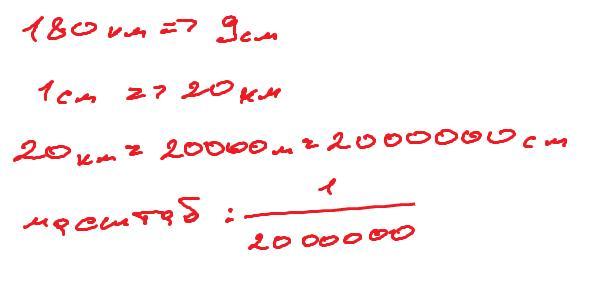 180 км => 9см
1см => 20 км
20км = 20000м = 2000000 см
масштаб : 1
2000000